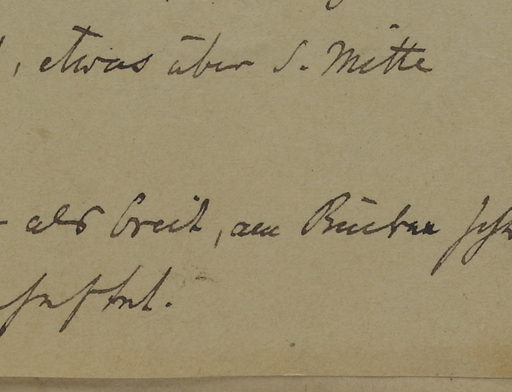 , etwas über d. Mitte
als breit, am Rücken